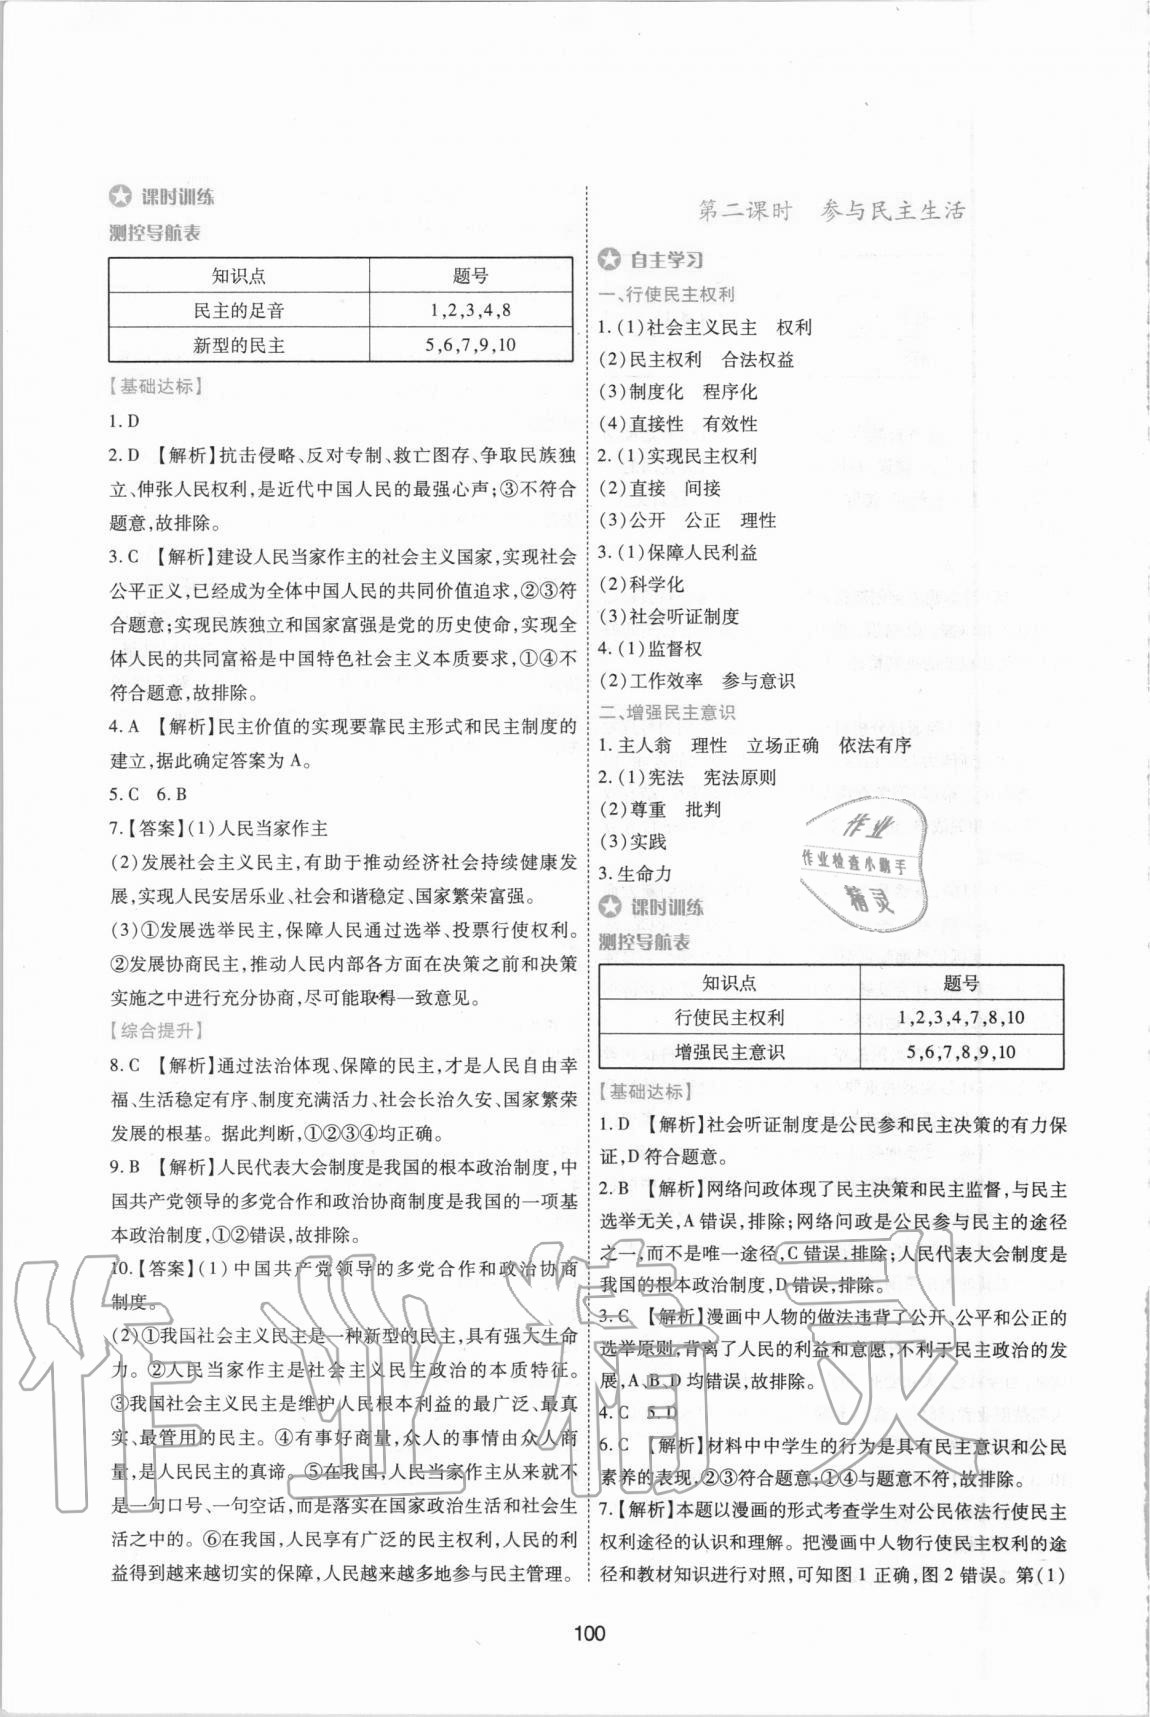 课时训练
测控导航表
知识点 题号
民主的足音 1,2,3,4,8
新型的民主 5,6,7,9,10
【基础达标】
1. D
2. D 【解析】抗击侵略、反对专制、救亡图存、争取民族独
立、伸张人民权利,是近代中国人民的最强心声;③不符合
题意,故排除。
3. C 【解析】建设人民当家作主的社会主义国家,实现社会
公平正义,已经成为全体中国人民的共同价值追求,②③符
合题意;实现民族独立和国家富强是党的历史使命,实现全
体人民的共同富裕是中国特色社会主义本质要求,①④不
符合题意,故排除。
4. A 【解析】民主价值的实现要靠民主形式和民主制度的
建立,据此确定答案为 A。
5. C 6. B
7.【答案】(1)人民当家作主
(2)发展社会主义民主,有助于推动经济社会持续健康发
展,实现人民安居乐业、社会和谐稳定、国家繁荣富强。
(3)①发展选举民主,保障人民通过选举、投票行使权利。
②发展协商民主,推动人民内部各方面在决策之前和决策
实施之中进行充分协商,尽可能取得一致意见。
【综合提升】
8. C 【解析】通过法治体现、保障的民主,才是人民自由幸
福、生活稳定有序、制度充满活力、社会长治久安、国家繁荣
发展的根基。据此判断,①②③④均正确。
9. B 【解析】人民代表大会制度是我国的根本政治制度,中
国共产党领导的多党合作和政治协商制度是我国的一项基
本政治制度,①②错误,故排除。
10.【答案】(1)中国共产党领导的多党合作和政治协商
制度。
(2)①我国社会主义民主是一种新型的民主,具有强大生命
力。②人民当家作主是社会主义民主政治的本质特征。
③我国社会主义民主是维护人民根本利益的最广泛、最真
实、最管用的民主。④有事好商量,众人的事情由众人商
量,是人民民主的真谛。⑤在我国,人民当家作主从来就不
是一句口号、一句空话,而是落实在国家政治生活和社会生
活之中的。⑥在我国,人民享有广泛的民主权利,人民的利
益得到越来越切实的保障,人民越来越多地参与民主管理。
第二课时 参与民主生活
自主学习
一、行使民主权利
1. (1)社会主义民主 权利
(2)民主权利 合法权益
(3)制度化 程序化
(4)直接性 有效性
2. (1)实现民主权利
(2)直接 间接
(3)公开 公正 理性
3. (1)保障人民利益
(2)科学化
(3)社会听证制度
4. (1)监督权
(2)工作效率 参与意识
二、增强民主意识
1. 主人翁 理性 立场正确 依法有序
2. (1)宪法 宪法原则
(2)尊重 批判
(3)实践
3. 生命力
作业
作业检查小助手
精灵
课时训练
测控导航表
知识点 题号
行使民主权利 1,2,3,4,7,8,10
增强民主意识 5,6,7,8,9,10
【基础达标】
1. D 【解析】社会听证制度是公民参和民主决策的有力保
证,D 符合题意。
2. B 【解析】网络问政体现了民主决策和民主监督,与民主
选举无关,A 错误,排除;网络问政是公民参与民主的途径
之一,而不是唯一途径,C 错误,排除;人民代表大会制度是
我国的根本政治制度,D 错误,排除。
3. C 【解析】漫画中人物的做法违背了公开、公平和公正的
选举原则,背离了人民的利益和意愿,不利于民主政治的发
展,A、B、D 均错误,故排除。
4. C 5. D
6. C 【解析】材料中中学生的行为是具有民主意识和公民
素养的表现,②③符合题意;①④与题意不符,故排除。
7.【解析】本题以漫画的形式考查学生对公民依法行使民主
权利途径的认识和理解。把漫画中人物行使民主权利的途
径和教材知识进行对照,可知图 1 正确,图 2 错误。第(1)
作业精灵
100